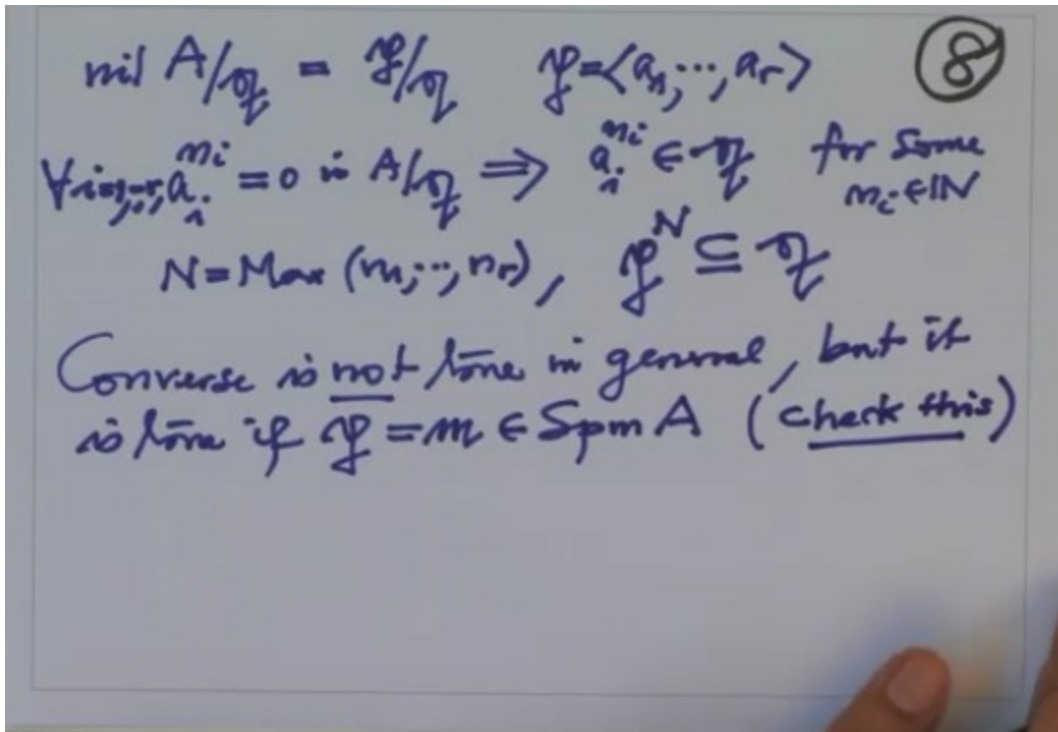 nil A/𝔮 = 𝔭/𝔮 𝔭=<a₁,...,aᵣ> ⑧
∀i=1,...,r, aᵢ^{nᵢ} = 0 in A/𝔮 ⟹ aᵢ^{nᵢ} ∈ 𝔮 for some nᵢ ∈ ℕ
N = Max (n₁,...,nᵣ), 𝔭^N ⊆ 𝔮
Converse is not true in general, but it
is true if 𝔭 = m ∈ Spm A (check this)